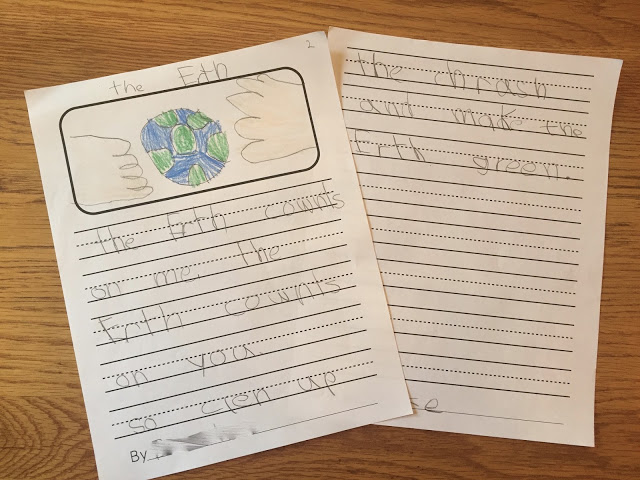 2
the Erth
the Erth counts
on me. the
Erth counts
on you.
so clen up
By
the chrash
and make the
Erth green.